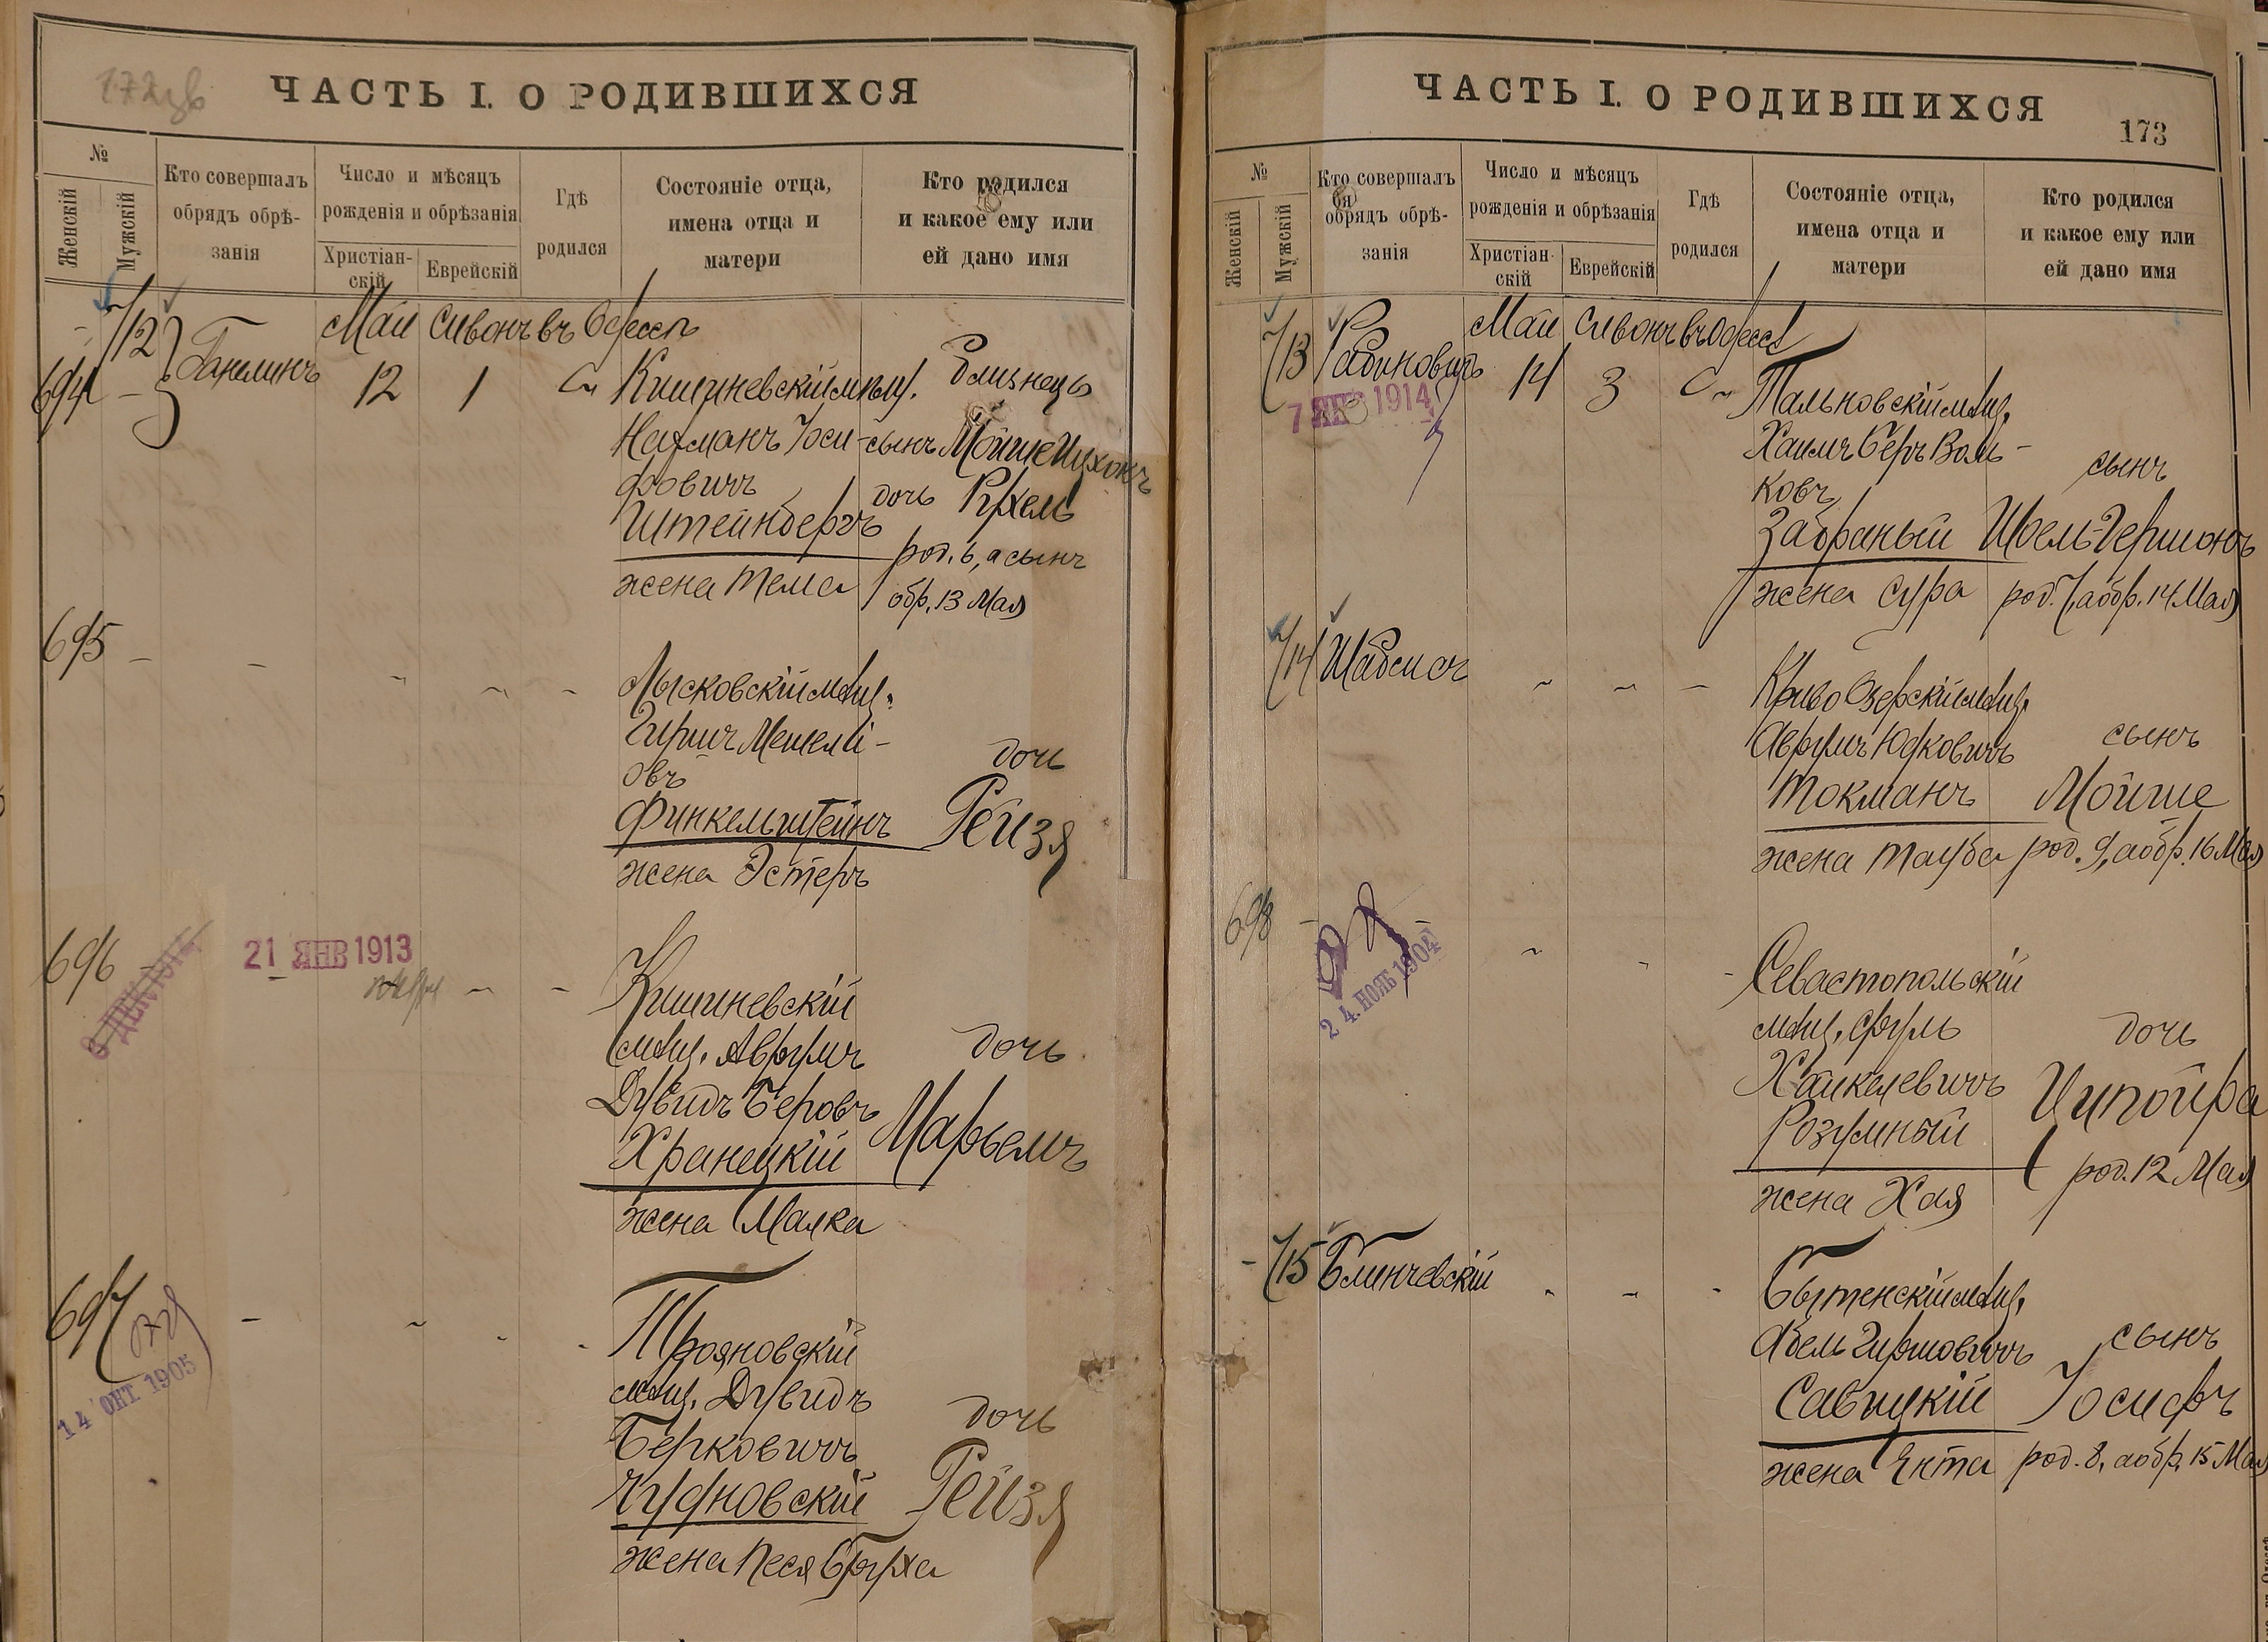 172 об
ЧАСТЬ I. О РОДИВШИХСЯ
№
Женскій
Мужскій
Кто совершалъ
обрядъ обрѣ-
занія
Число и мѣсяцъ
рожденія и обрѣзанія
Христіан-
скій
Еврейскій
Гдѣ
родился
Состояніе отца,
имена отца и
матери
Кто родился
и какое ему или
ей дано имя
712
694
Ганелинъ
Май Сивонъ въ Одессѣ
12 1
Кишиневскій мѣщ.
Нахманъ Іоси-
фовичъ
Штейнбергъ
жена Тема
Близнецъ
сынъ Мойше Ицхокъ
дочь Рухель
род. 6, а сынъ
обр. 13 Мая
695
Лысковскій мѣщ.
Гиршъ
овъ
Финкельштейнъ
жена Эстеръ
дочь
Рейзя
696
21 ЯНВ 1913
Кишиневскій
мѣщ. Аврумъ
Дувидъ Беровъ
Хранецкій
жена Малка
дочь
Марьемъ
697
14 ОКТ. 1905
Трояновскій
мѣщ. Дувидъ
Берковичъ
Чудновскій
жена Песя Бруха
дочь
Рейзя
ЧАСТЬ I. О РОДИВШИХСЯ
173
№
Женскій
Мужскій
Кто совершалъ
обрядъ обрѣ-
занія
Число и мѣсяцъ
рожденія и обрѣзанія
Христіан-
скій
Еврейскій
Гдѣ
родился
Состояніе отца,
имена отца и
матери
Кто родился
и какое ему или
ей дано имя
713
Рабиновичъ
7 ЯНВ 1914
Май Сивонъ въ Одессѣ
14 3
Тальновскій мѣщ.
Хаимъ Беръ Воль-
ковъ
Забраный
жена Сура
сынъ
Шоель-Гершонъ
род. 7, а обр. 14 Мая
714
Шабсисъ
Криво Озерскій мѣщ.
Аврумъ Юдковичъ
Токманъ
жена Тауба
сынъ
Мойше
род. 9, а обр. 16 Мая
698
24. НОЯБ 1904
Севастопольскій
мѣщ. Сруль
Хайкелевичъ
Розумный
жена Хая
дочь
Ципойра
род. 12 Мая
715
Блинчевскій
Бытенскій мѣщ.
Абель Гиршовичъ
Савицкій
жена Ента
сынъ
Іосифъ
род. 8, а обр. 15 Мая